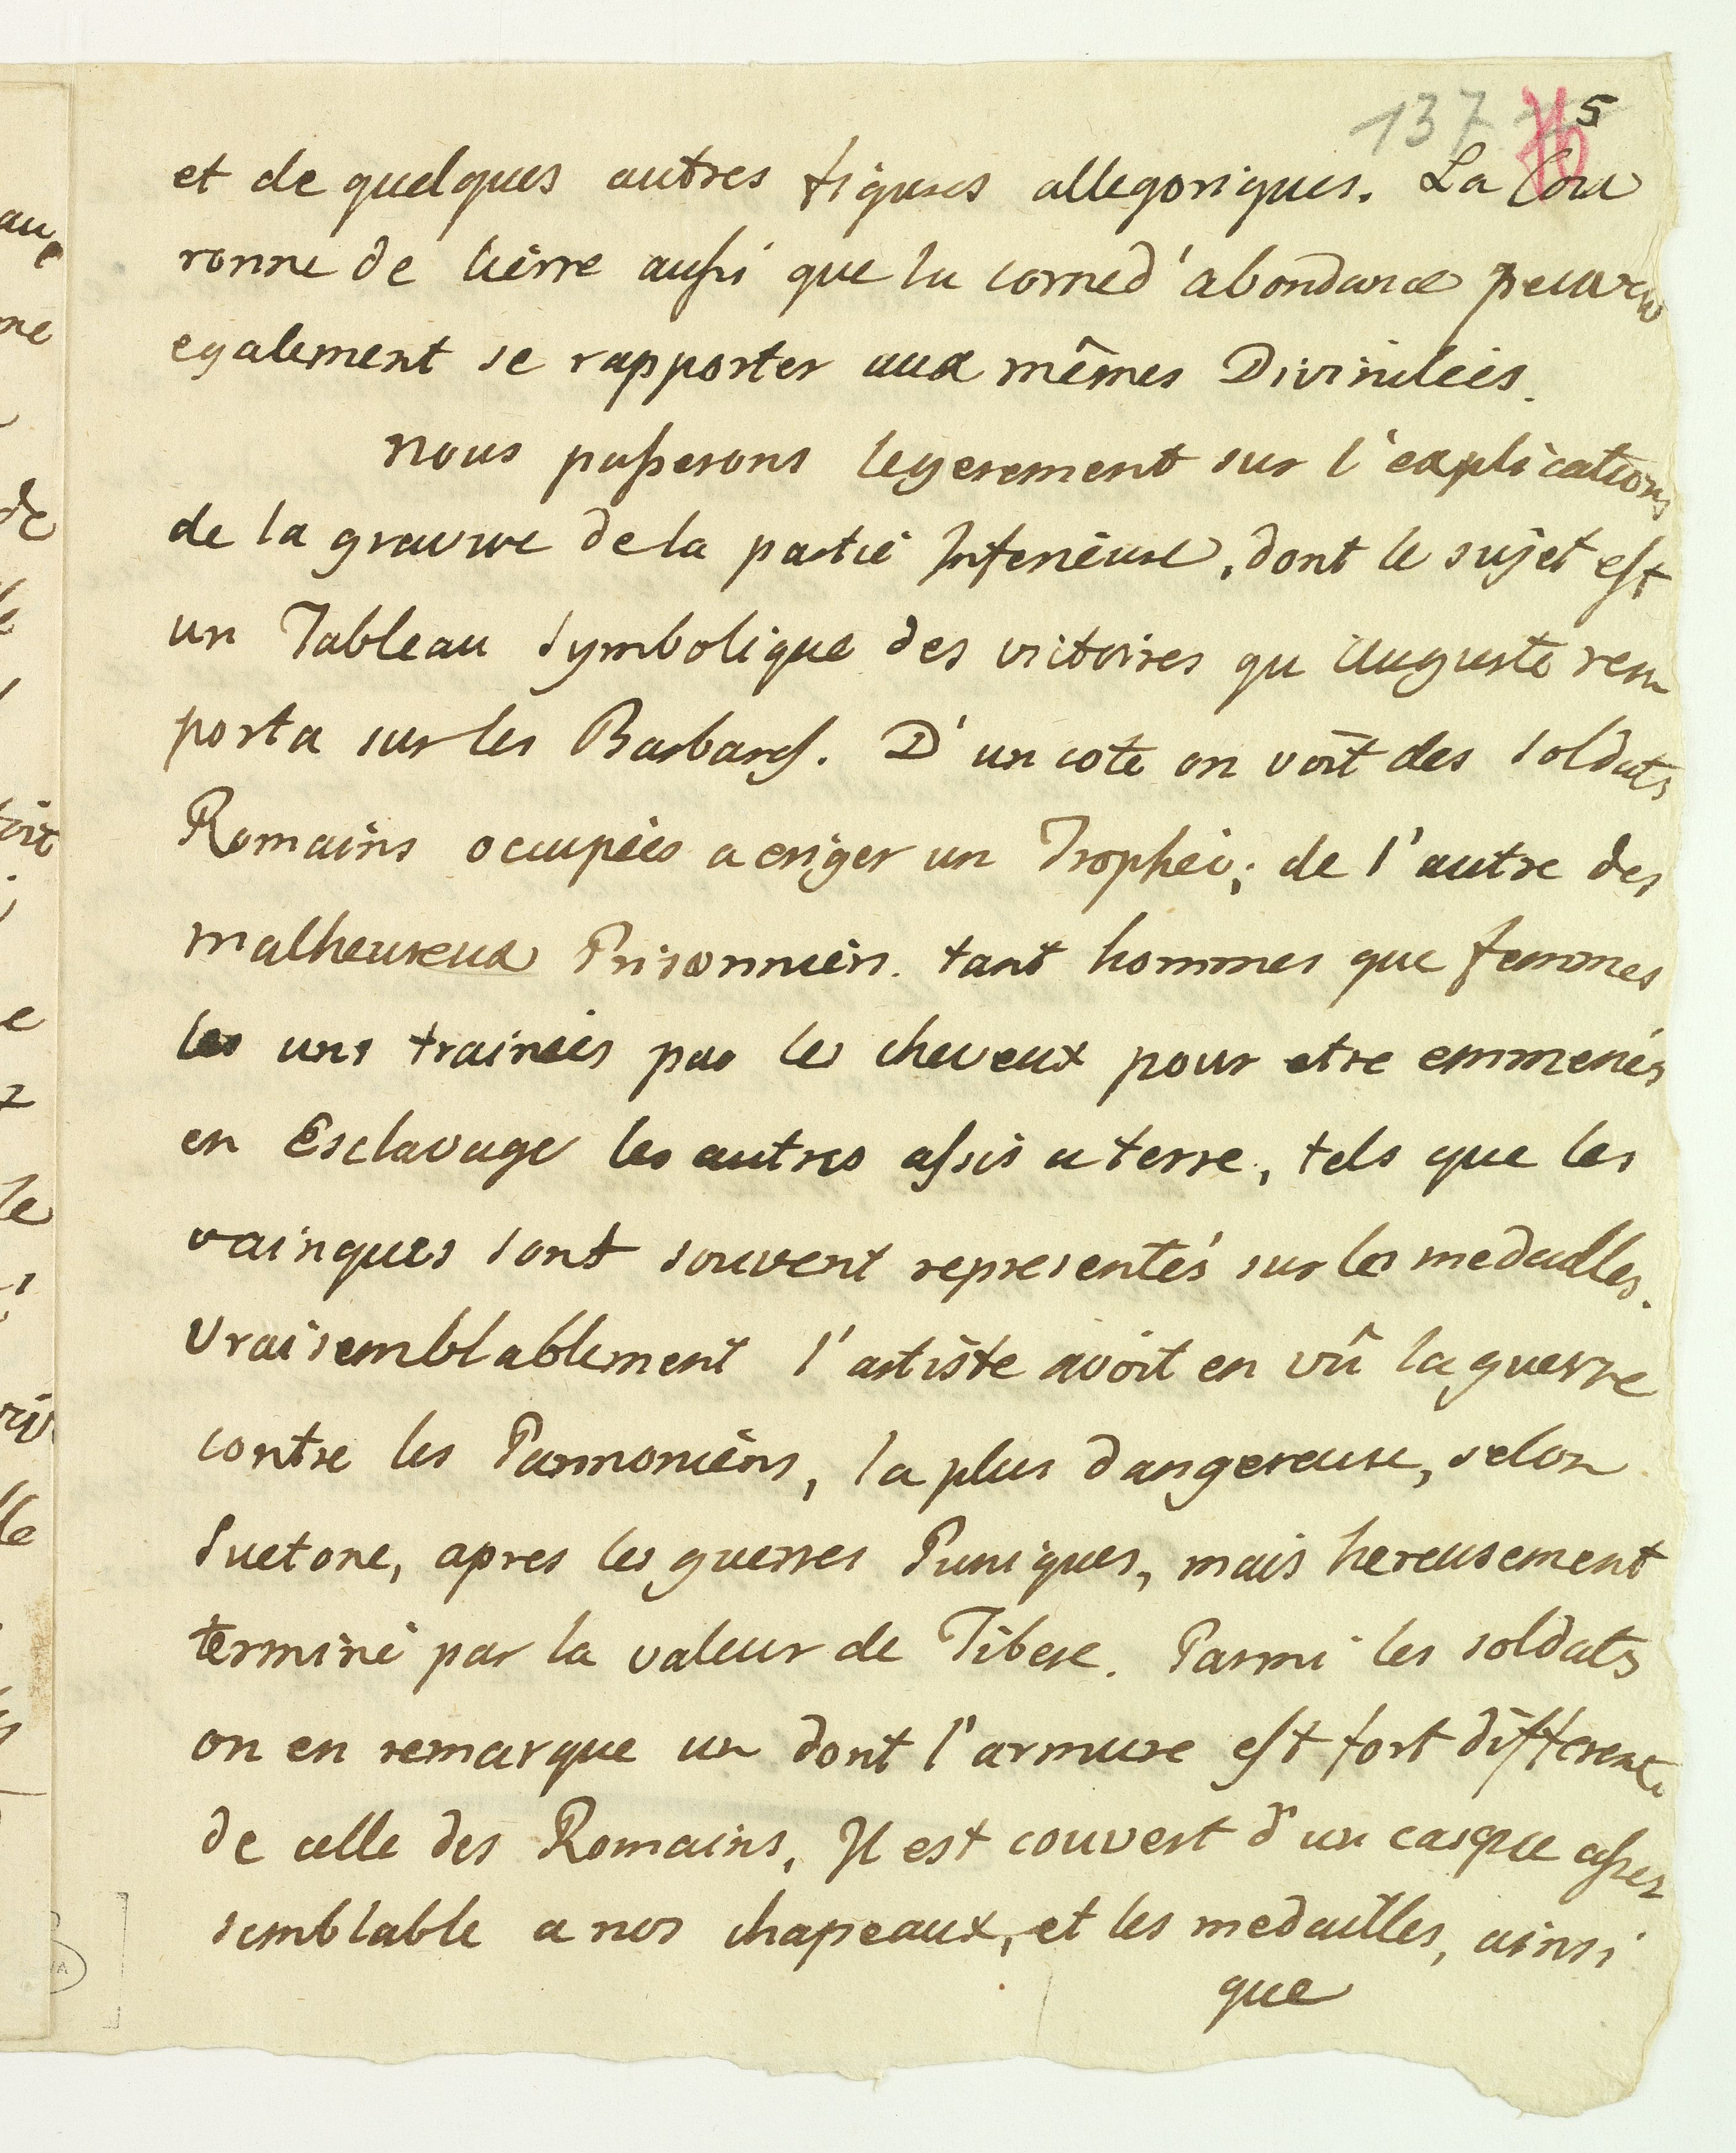 137 5
et de quelques autres figures allegoriques. La Cou
ronne de lièrre aussi que la corne d'abondance peuven
egalement se rapporter aux mêmes Divinitées.
nous passerons legerement sur l'explications
de la gravure de la partie Inferieure, dont le sujet est
un Tableau Symbolique des victoires qu'Auguste rem
porta sur les Barbares. D'un cote on voit des soldats
Romains occupées a eriger un Trophée; de l'autre des
malheureux Prisonniers. tant hommes que femmes
les uns trainées par les cheveux pour etre emmenés
en Esclavage les autres assis a terre, tels que les
vainques sont souvent representés sur les medailles.
Vraisemblablement l'artiste avoit en vû la guerre
contre les Pannoniens, la plus dangereuse, selon
Suetone, apres les guerres Puniques, mais hereusement
terminé par la valeur de Tibere. Parmi les soldats
on en remarque un dont l'armure est fort differente
de celle des Romains, Il est couvert d'un casque assez
semblable a nos chapeaux, et les medailles, ainsi
que